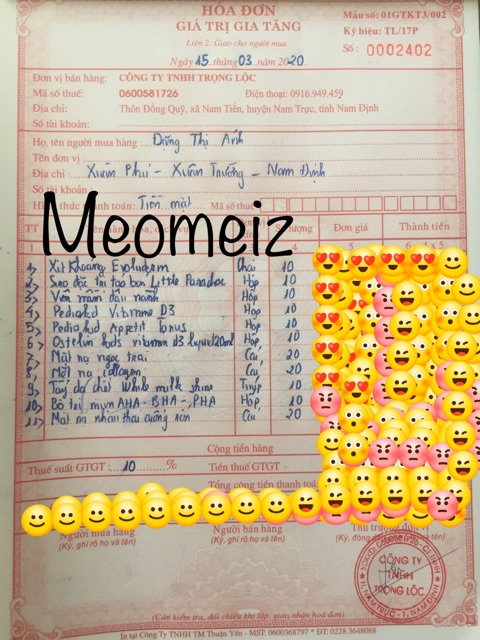 HÓA ĐƠN
GIÁ TRỊ GIA TĂNG
Liên 2: Giao cho người mua
Ngày 15 tháng 03 năm 2020
Mẫu số: 01GTKT3/002
Ký hiệu: TL/17P
Số: 0002402
Đơn vị bán hàng: CÔNG TY TNHH TRỌNG LỘC
Mã số thuế: 0600581726 Điện thoại: 0916.949.459
Địa chỉ: Thôn Đồng Quỹ, xã Nam Tiến, huyện Nam Trực, tỉnh Nam Định
Số tài khoản:
Họ, tên người mua hàng Đặng Thị Ánh
Tên đơn vị
Địa chỉ: Xuân Phú - Xuân Trường - Nam Định
Số tài
Hình thức thanh toán: Tiền mặt Mã số
Meomeiz
TT lượng Đơn giá Thành tiền
1> Xịt Khoáng Evoluderm Chai 10
2> Sữa đặc trị táo bón Little Hộp 10
3> Viên mầm đậu nành Hộp 10
4> Pediakid Vitamine D3 Hộp 10
5> Pediakid Appetit Tonus Hộp 10
6> Ostelin kids vitamin d3 liquid 20ml Hộp 10
7> Mặt nạ ngọc trai Cái 20
8> Mặt nạ collagen Cái 20
9> Tẩy da chết white milk shine Tuýp 10
10> Bộ trị mụn AHA - BHA - PHA Hộp 10
11> Mặt nạ nhau thai cuống rốn Cái 20
Cộng tiền hàng
Thuế suất GTGT: 10 % Tiền thuế GTGT
Tổng cộng tiền thanh toán
Người mua hàng Người bán hàng Thủ trưởng đơn vị
(Ký, ghi rõ họ và tên) (Ký, ghi rõ họ và tên) (Ký, đóng
CÔNG TY
TNHH
TRỌNG LỘC
(Cần kiểm tra, đối chiếu khi lập, giao, nhận hoá đơn)
In tại Công Ty TNHH TM Thuận Yến - MST: 0600368797 * ĐT: 0228.3648088